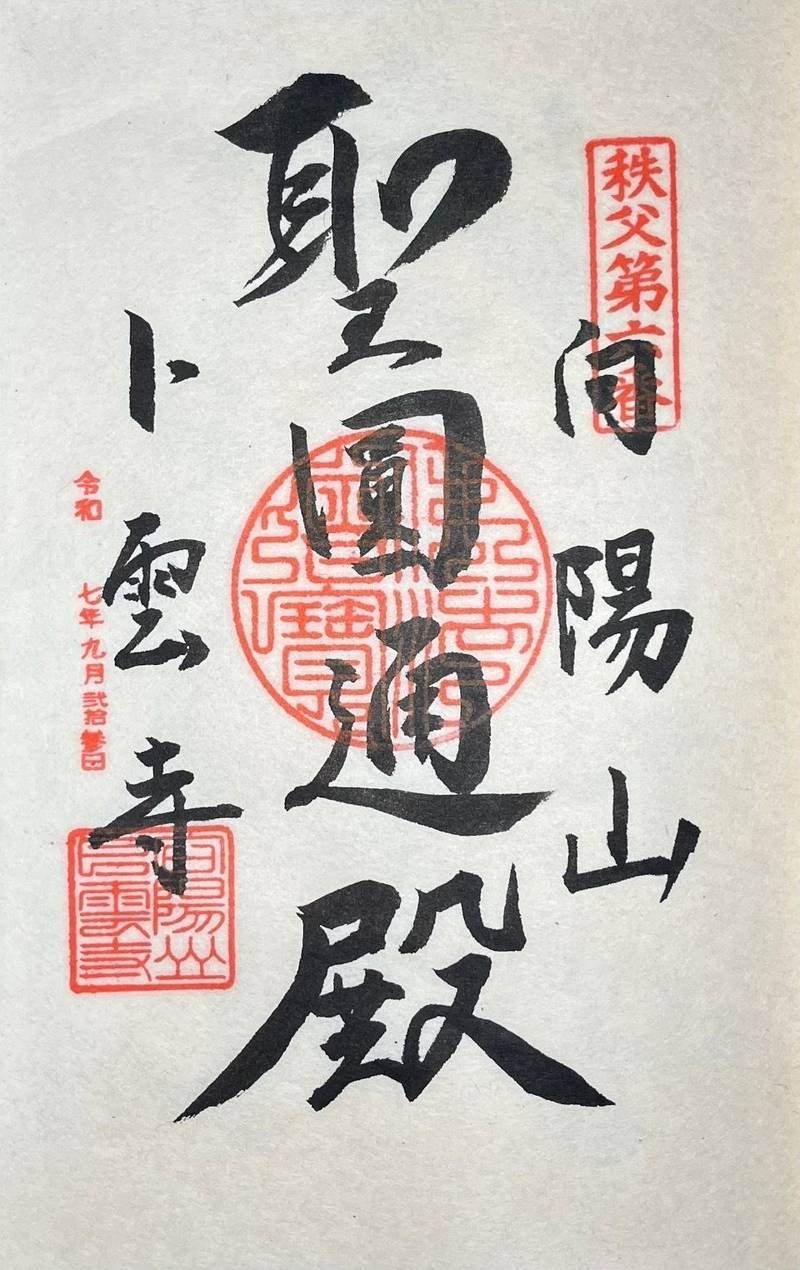 秩父第六番
向陽山
聖圓通殿
卜雲寺
令和 七年九月弐拾参日
向陽山
卜雲寺